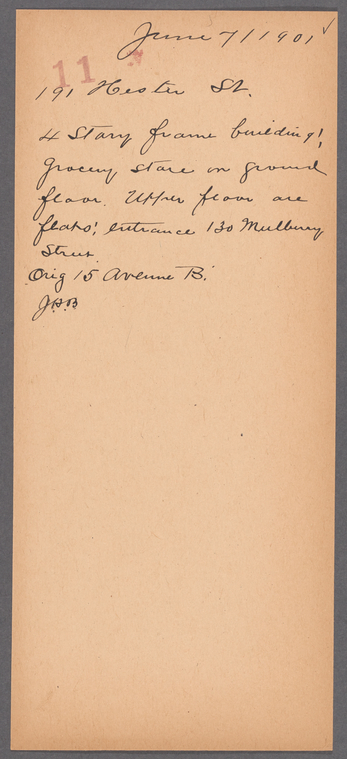 June 7/1901 ✓
11
191 Hester St.
4 Story frame building!
Grocery store on ground
floor. Upper floor are
flats! entrance 130 Mulberry
Street.
Orig 15 Avenue B.
J.P.B